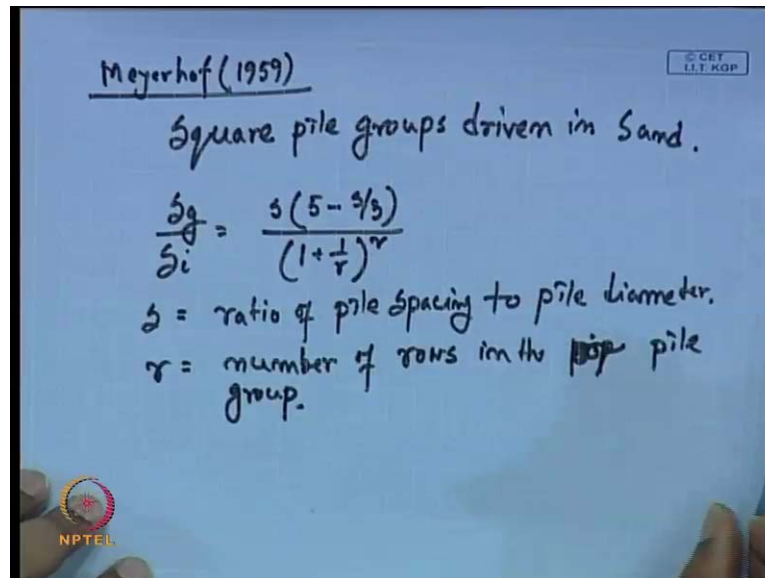 Meyerhof (1959)
© CET
I.I.T. KGP
Square pile groups driven in Sand.
Sg/Si = s(5 - s/3)/(1 + 1/r)^r
s = ratio of pile spacing to pile diameter.
r = number of rows in the pile
group.
NPTEL